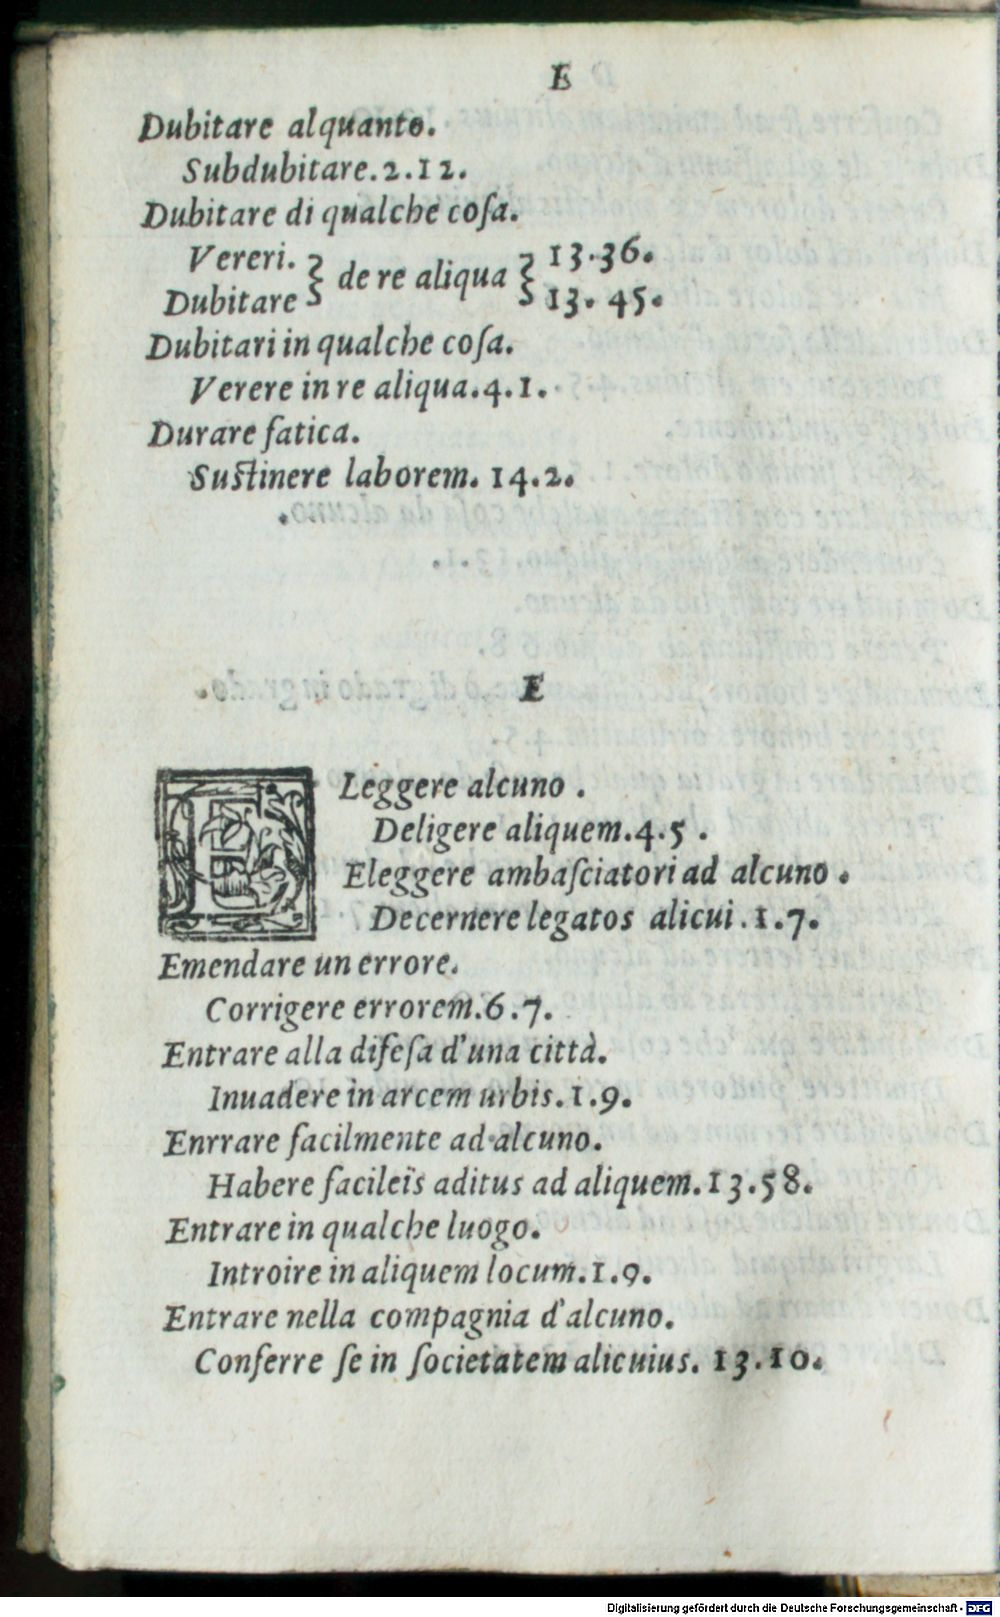 E
Dubitare alquanto.
Subdubitare.2.12.
Dubitare di qualche coſa.
Vereri. } de re aliqua } 13.36.
Dubitare } 13. 45.
Dubitari in qualche coſa.
Verere in re aliqua.4.1.
Durare fatica.
Suſtinere laborem. 14.2.
E
E Leggere alcuno .
Deligere aliquem.4.5 .
Eleggere ambaſciatori ad alcuno .
Decernere legatos alicui.1.7.
Emendare un errore.
Corrigere errorem.6.7.
Entrare alla difeſa d'una città.
Inuadere in arcem urbis.1.9.
Enrrare facilmente ad alcuno.
Habere facileis aditus ad aliquem.13.58.
Entrare in qualche luogo.
Introire in aliquem locum.1.9.
Entrare nella compagnia d'alcuno.
Conferre ſe in ſocietatem alicuius. 13.10.
Digitalisierung gefördert durch die Deutsche Forschungsgemeinschaft - DFG